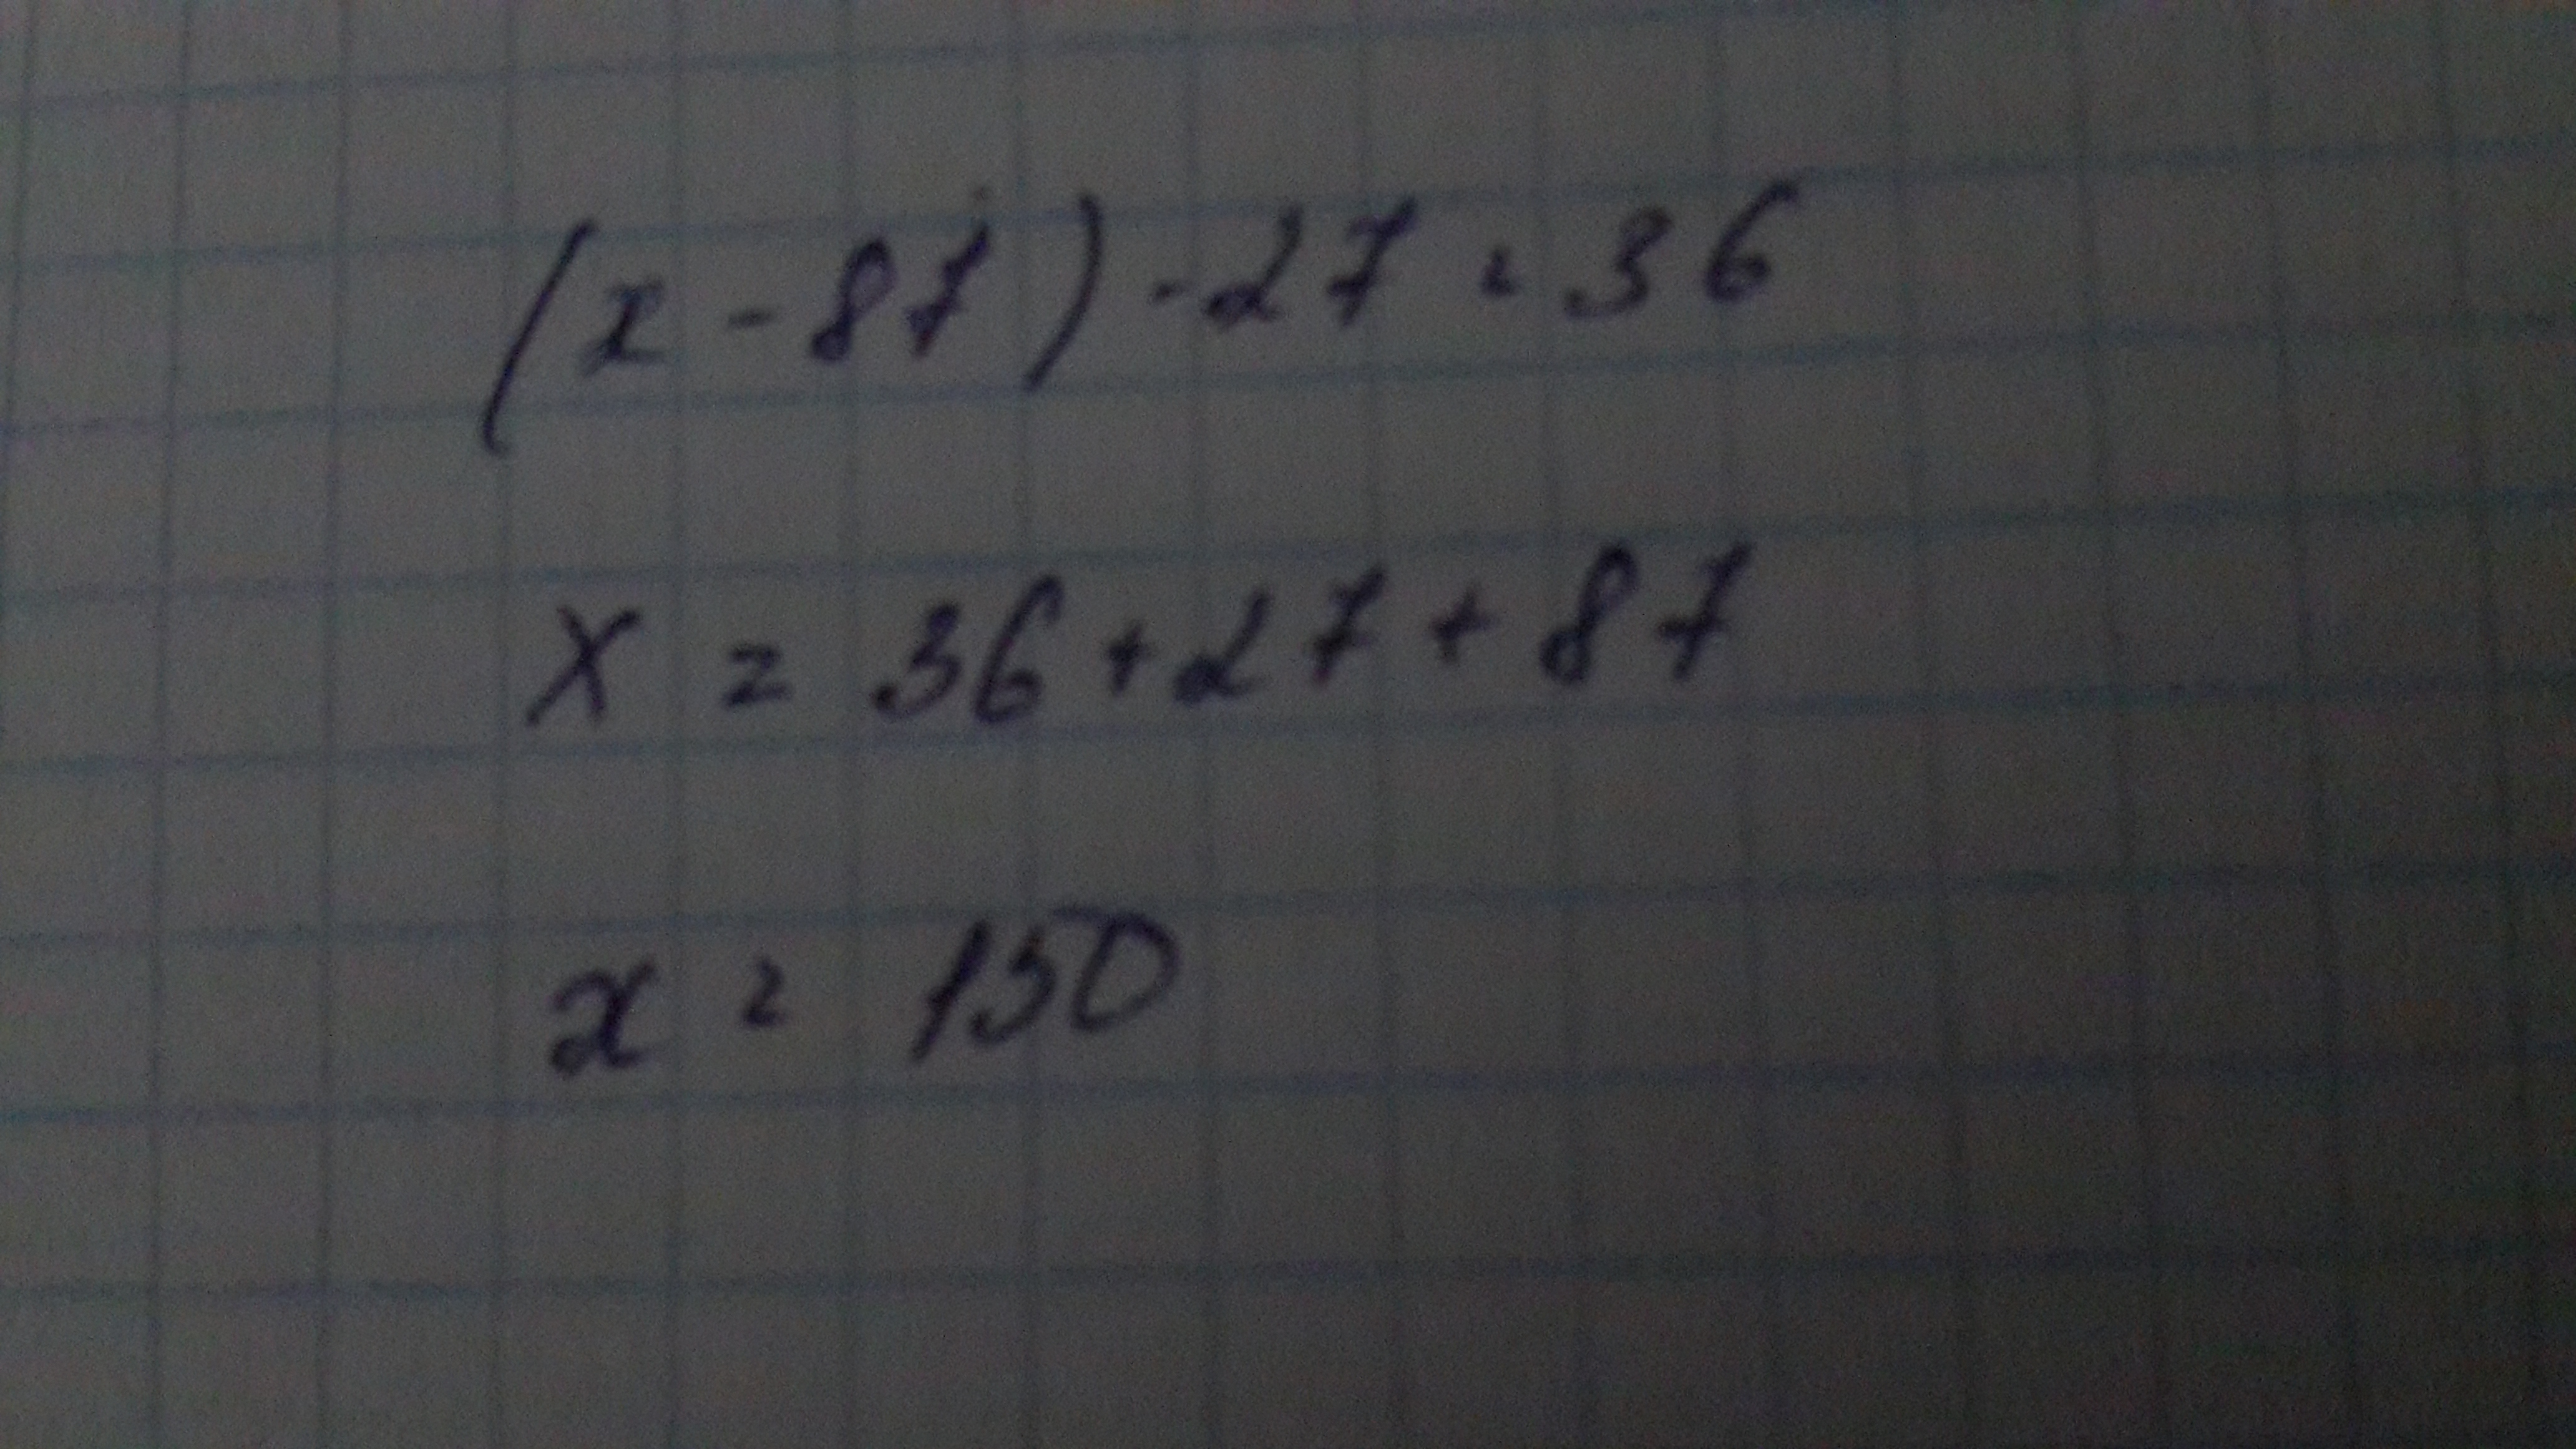 (x - 87) - 27 = 36
x = 36 + 27 + 87
x = 150